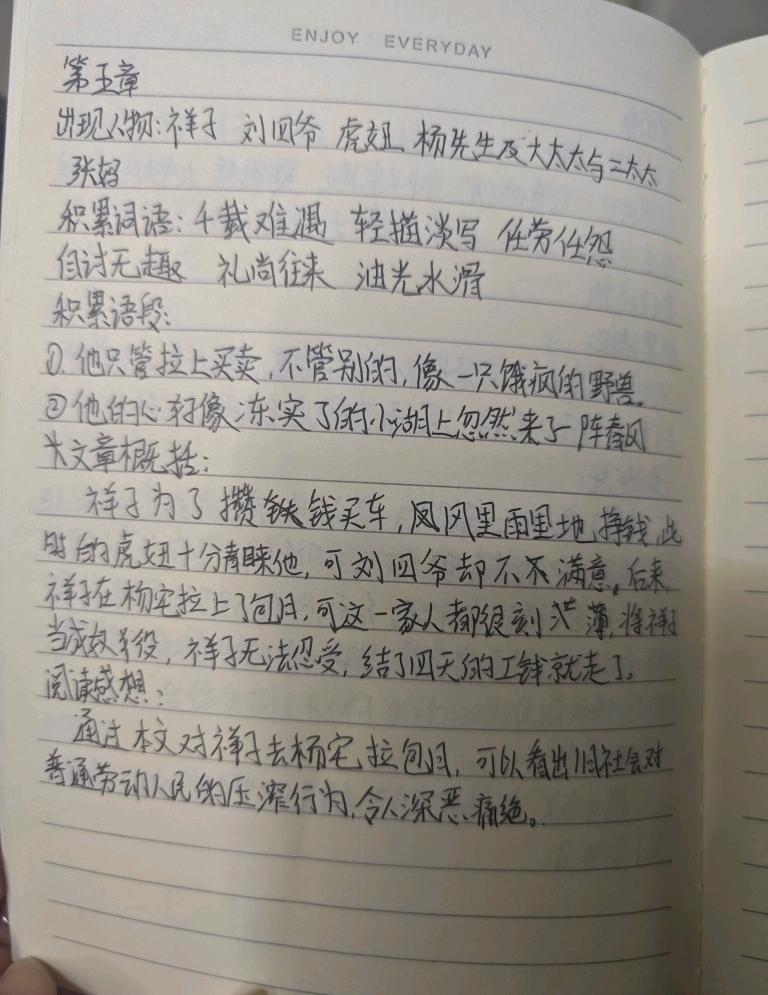 ENJOY EVERYDAY
第五章
出现人物:祥子 刘四爷 虎妞 杨先生及大太太与二太太
张妈
积累词语:千载难遇 轻描淡写 任劳任怨
自讨无趣 礼尚往来 油光水滑
积累语段:
①.他只管拉上买卖,不管别的,像一只饿疯的野兽。
②他的心好像冻实了的小湖上忽然来了一阵春风
文章概括:
祥子为了攒钱买车,风里雨里地挣钱,此
时的虎妞十分青睐他,可刘四爷却不满意。后来,
祥子在杨宅拉上了包月,可这一家人都很刻薄,将祥子
当成奴役,祥子无法忍受,结了四天的工钱就走了。
阅读感想:
通过本文对祥子去杨宅拉包月,可以看出旧社会对
普通劳动人民的压榨行为,令人深恶痛绝。